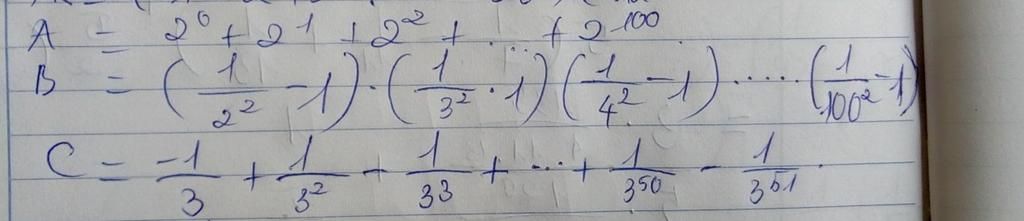 A = 2⁰ + 2¹ + 2² + ... + 2¹⁰⁰
B = (1/2² - 1) · (1/3² · 1) (1/4² - 1) ..... (1/100² - 1)
C = -1/3 + 1/3² + 1/3³ + ... + 1/3⁵⁰ - 1/3⁵¹ .